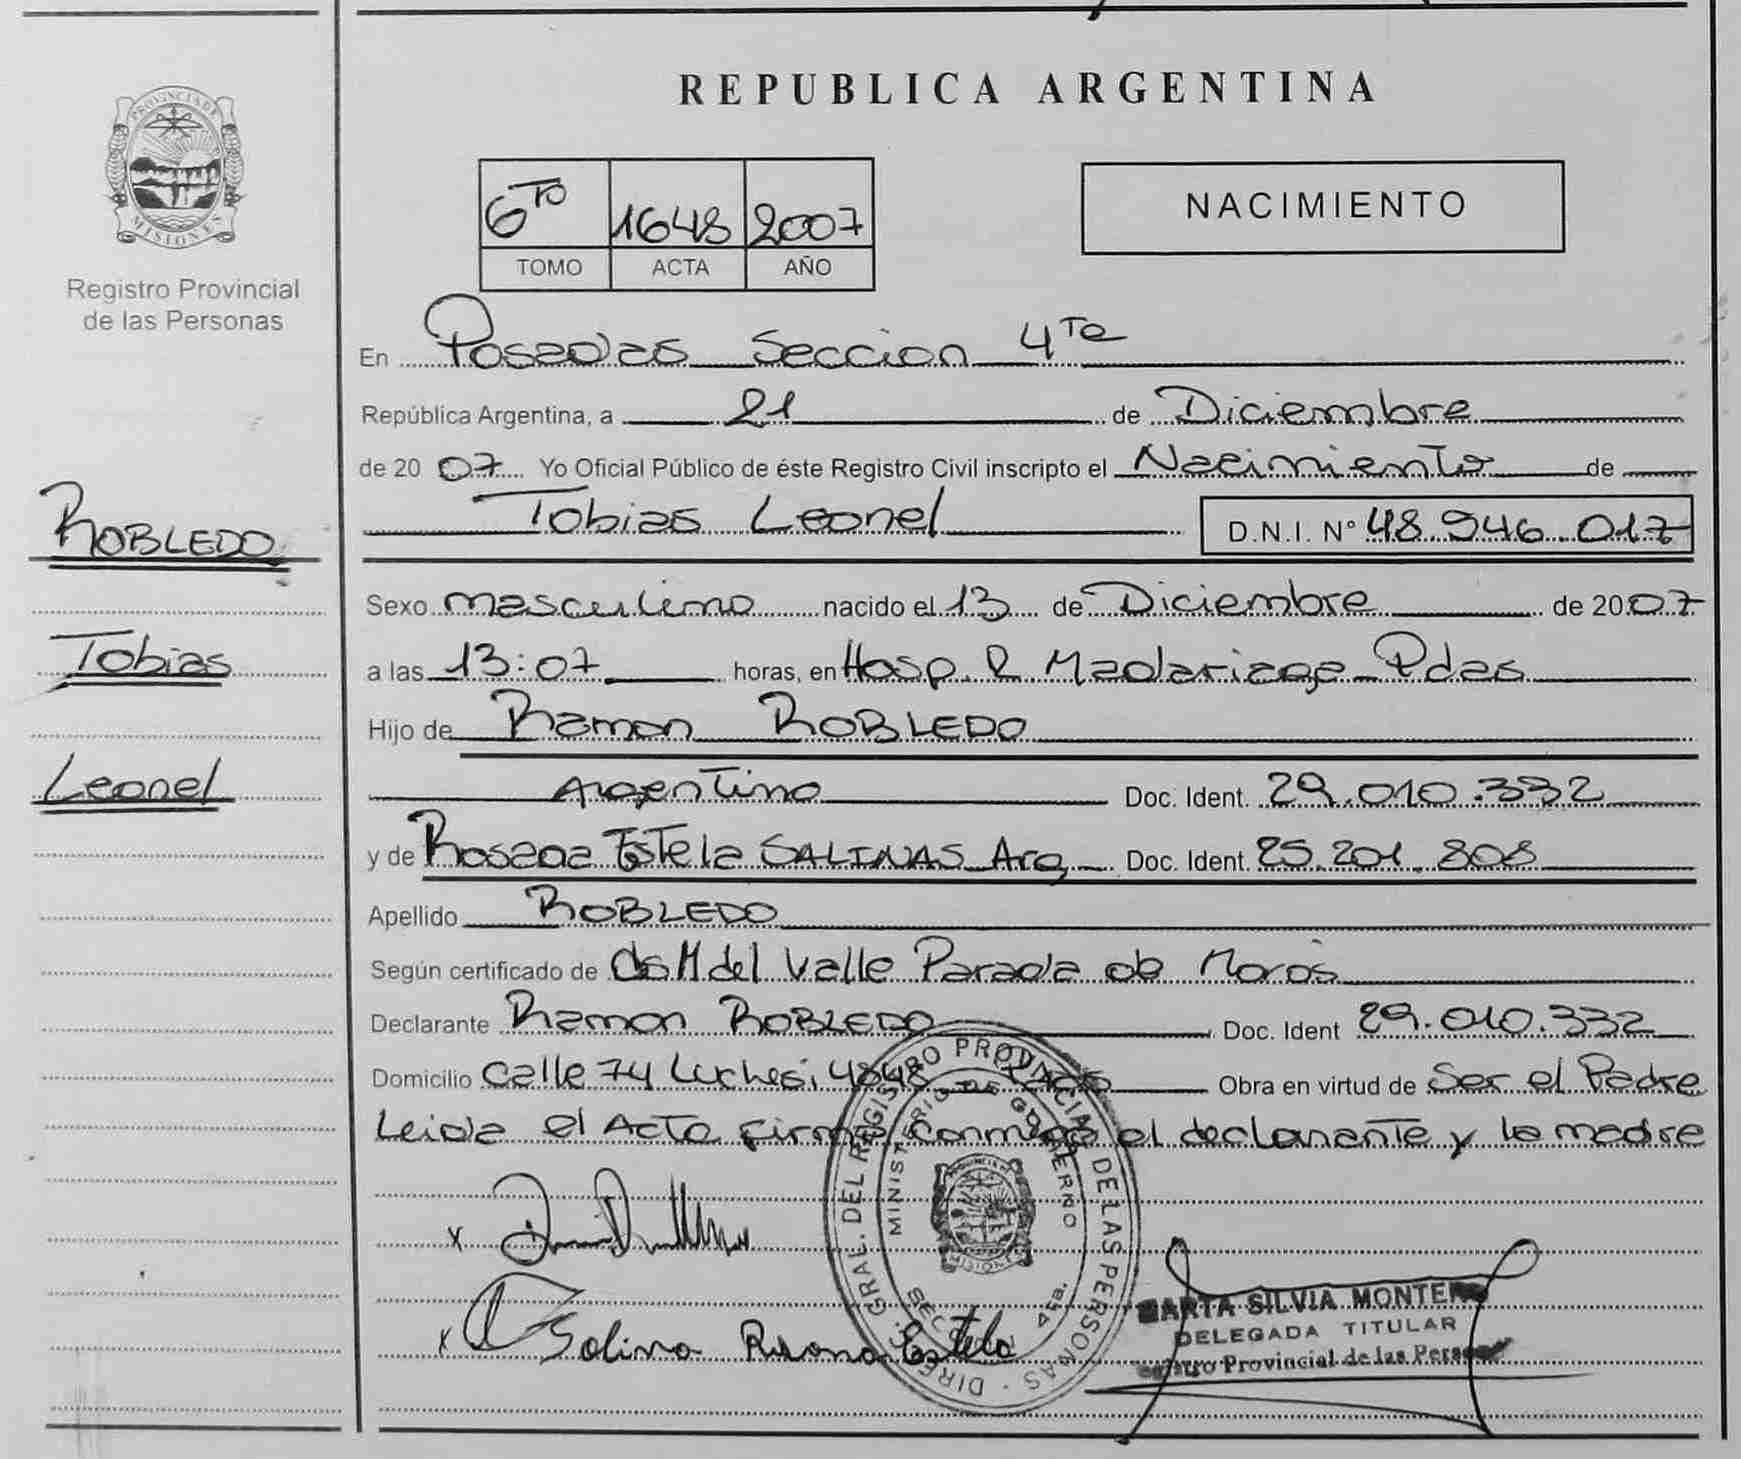 PROVINCIA DE
MISIONES
Registro Provincial
de las Personas
ROBLEDO
Tobias
Leonel
REPUBLICA ARGENTINA
6TO 1648 2007
TOMO ACTA AÑO
NACIMIENTO
En Posadas Seccion 4ta
República Argentina, a 21 de Diciembre
de 2007 Yo Oficial Público de éste Registro Civil inscripto el Nacimiento de
Tobias Leonel D.N.I. Nº 48.946.017
Sexo masculino nacido el 13 de Diciembre de 2007
a las 13:07 horas, en Hosp. R Madariaga Pdas
Hijo de Ramon ROBLEDO
Argentino Doc. Ident. 29.010.332
y de Rosana Estela SALINAS Arg Doc. Ident. 25.201.808
Apellido ROBLEDO
Según certificado de M del Valle Parada de
Declarante Ramon ROBLEDO Doc. Ident 29.010.332
Domicilio Calle 74 Luchesi 4848 Pdas Obra en virtud de Ser el Padre
Leida el Acta firma conmigo el declarante y la madre
DIREC. GRAL. DEL REGISTRO PROVINCIAL DE LAS PERSONAS
MINISTERIO DE GOBIERNO
SECCION 4ta.
PROVINCIA DE
MISIONES
x
x Salina Rosana Estela
MARTA SILVIA MONTERO
DELEGADA TITULAR
Registro Provincial de las Personas